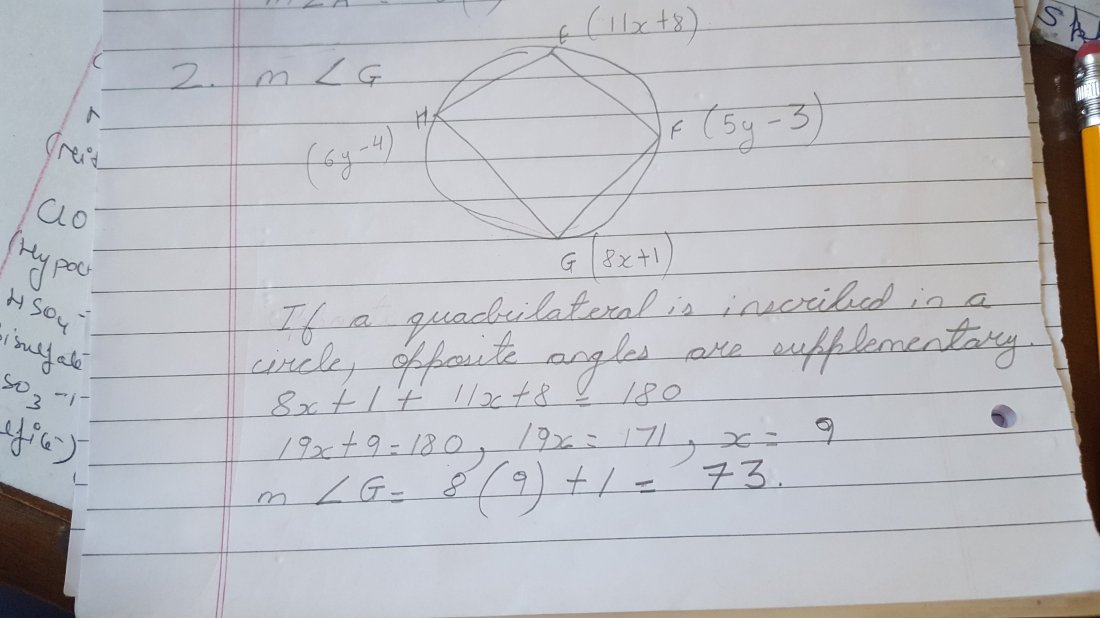 2. m ∠G
E (11x+8)
H
F (5y-3)
(6y-4)
G (8x+1)
If a quadrilateral is inscribed in a
circle, opposite angles are supplementary.
8x+1+ 11x+8 = 180
19x+9=180, 19x=171, x= 9
m ∠G= 8(9)+1= 73.
ClO
HSO4-
SO3-1-